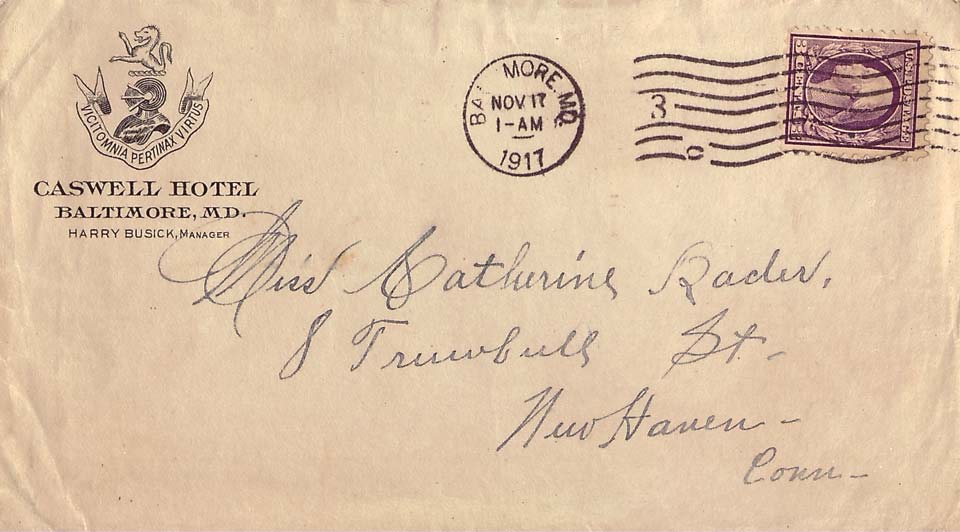 VICIT OMNIA PERTINAX VIRTUS
CASWELL HOTEL
BALTIMORE, MD.
HARRY BUSICK, MANAGER
BA MORE, MD.
NOV 17
1-AM
1917
3
C
3 CENTS 3
Miss Katherine Rader.
8 Trumbull St.
New Haven -
Conn -